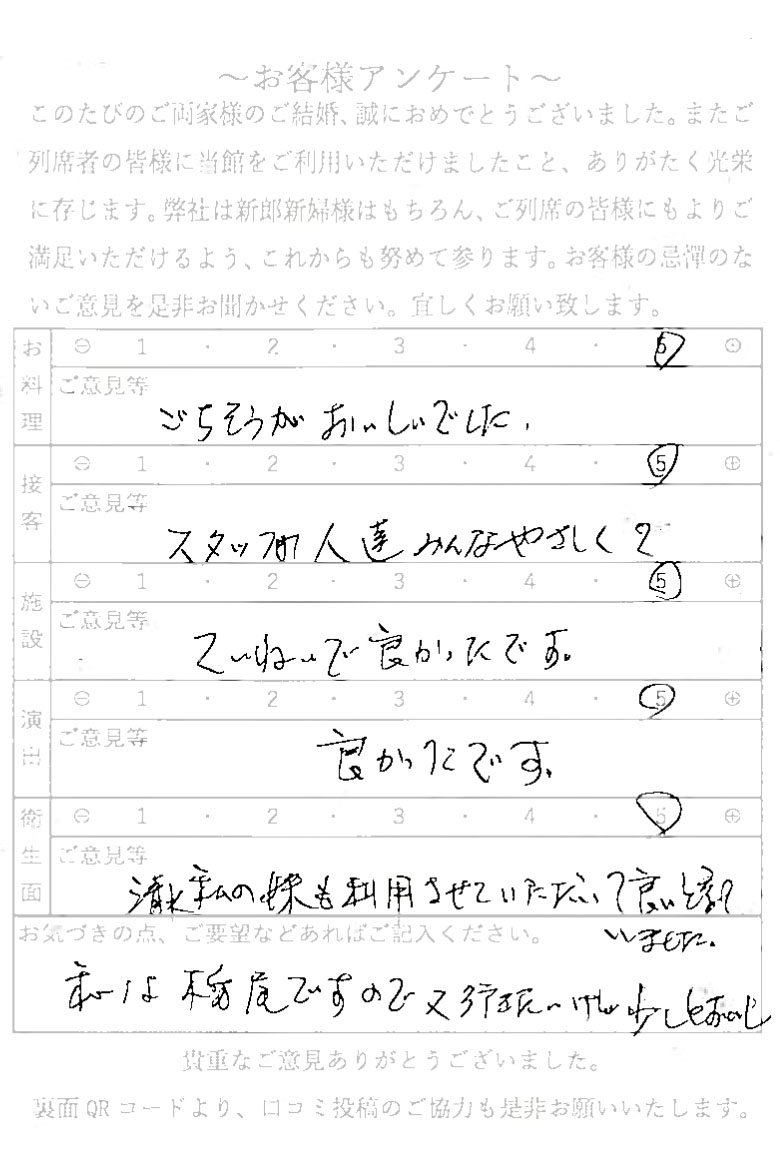 ～お客様アンケート～
このたびのご両家様のご結婚、誠におめでとうございました。またご
列席者の皆様に当館をご利用いただけましたこと、ありがたく光栄
に存じます。弊社は新郎新婦様はもちろん、ご列席の皆様にもよりご
満足いただけるよう、これからも努めて参ります。お客様の忌憚のな
いご意見を是非お聞かせください。宜しくお願い致します。
お料理 ⊖ 1 ・ 2 ・ 3 ・ 4 ・ 5 ⊙
ご意見等
ごちそうがおいしいでした.
接客 ⊖ 1 ・ 2 ・ 3 ・ 4 ・ 5 ⊕
ご意見等
スタッフの人達みんなやさしくて
施設 ⊖ 1 ・ 2 ・ 3 ・ 4 ・ 5 ⊕
ご意見等
ていねいで良かったです。
演出 ⊖ 1 ・ 2 ・ 3 ・ 4 ・ 5 ⊕
ご意見等
良かったです.
衛生面 ⊖ 1 ・ 2 ・ 3 ・ 4 ・ 5 ⊕
ご意見等
私の妹も利用させていただいて良い
いました.
お気づきの点、ご要望などあればご記入ください。
私は栃尾ですので又行きたいけど少しとおいし
貴重なご意見ありがとうございました。
裏面 QR コードより、口コミ投稿のご協力も是非お願いいたします。